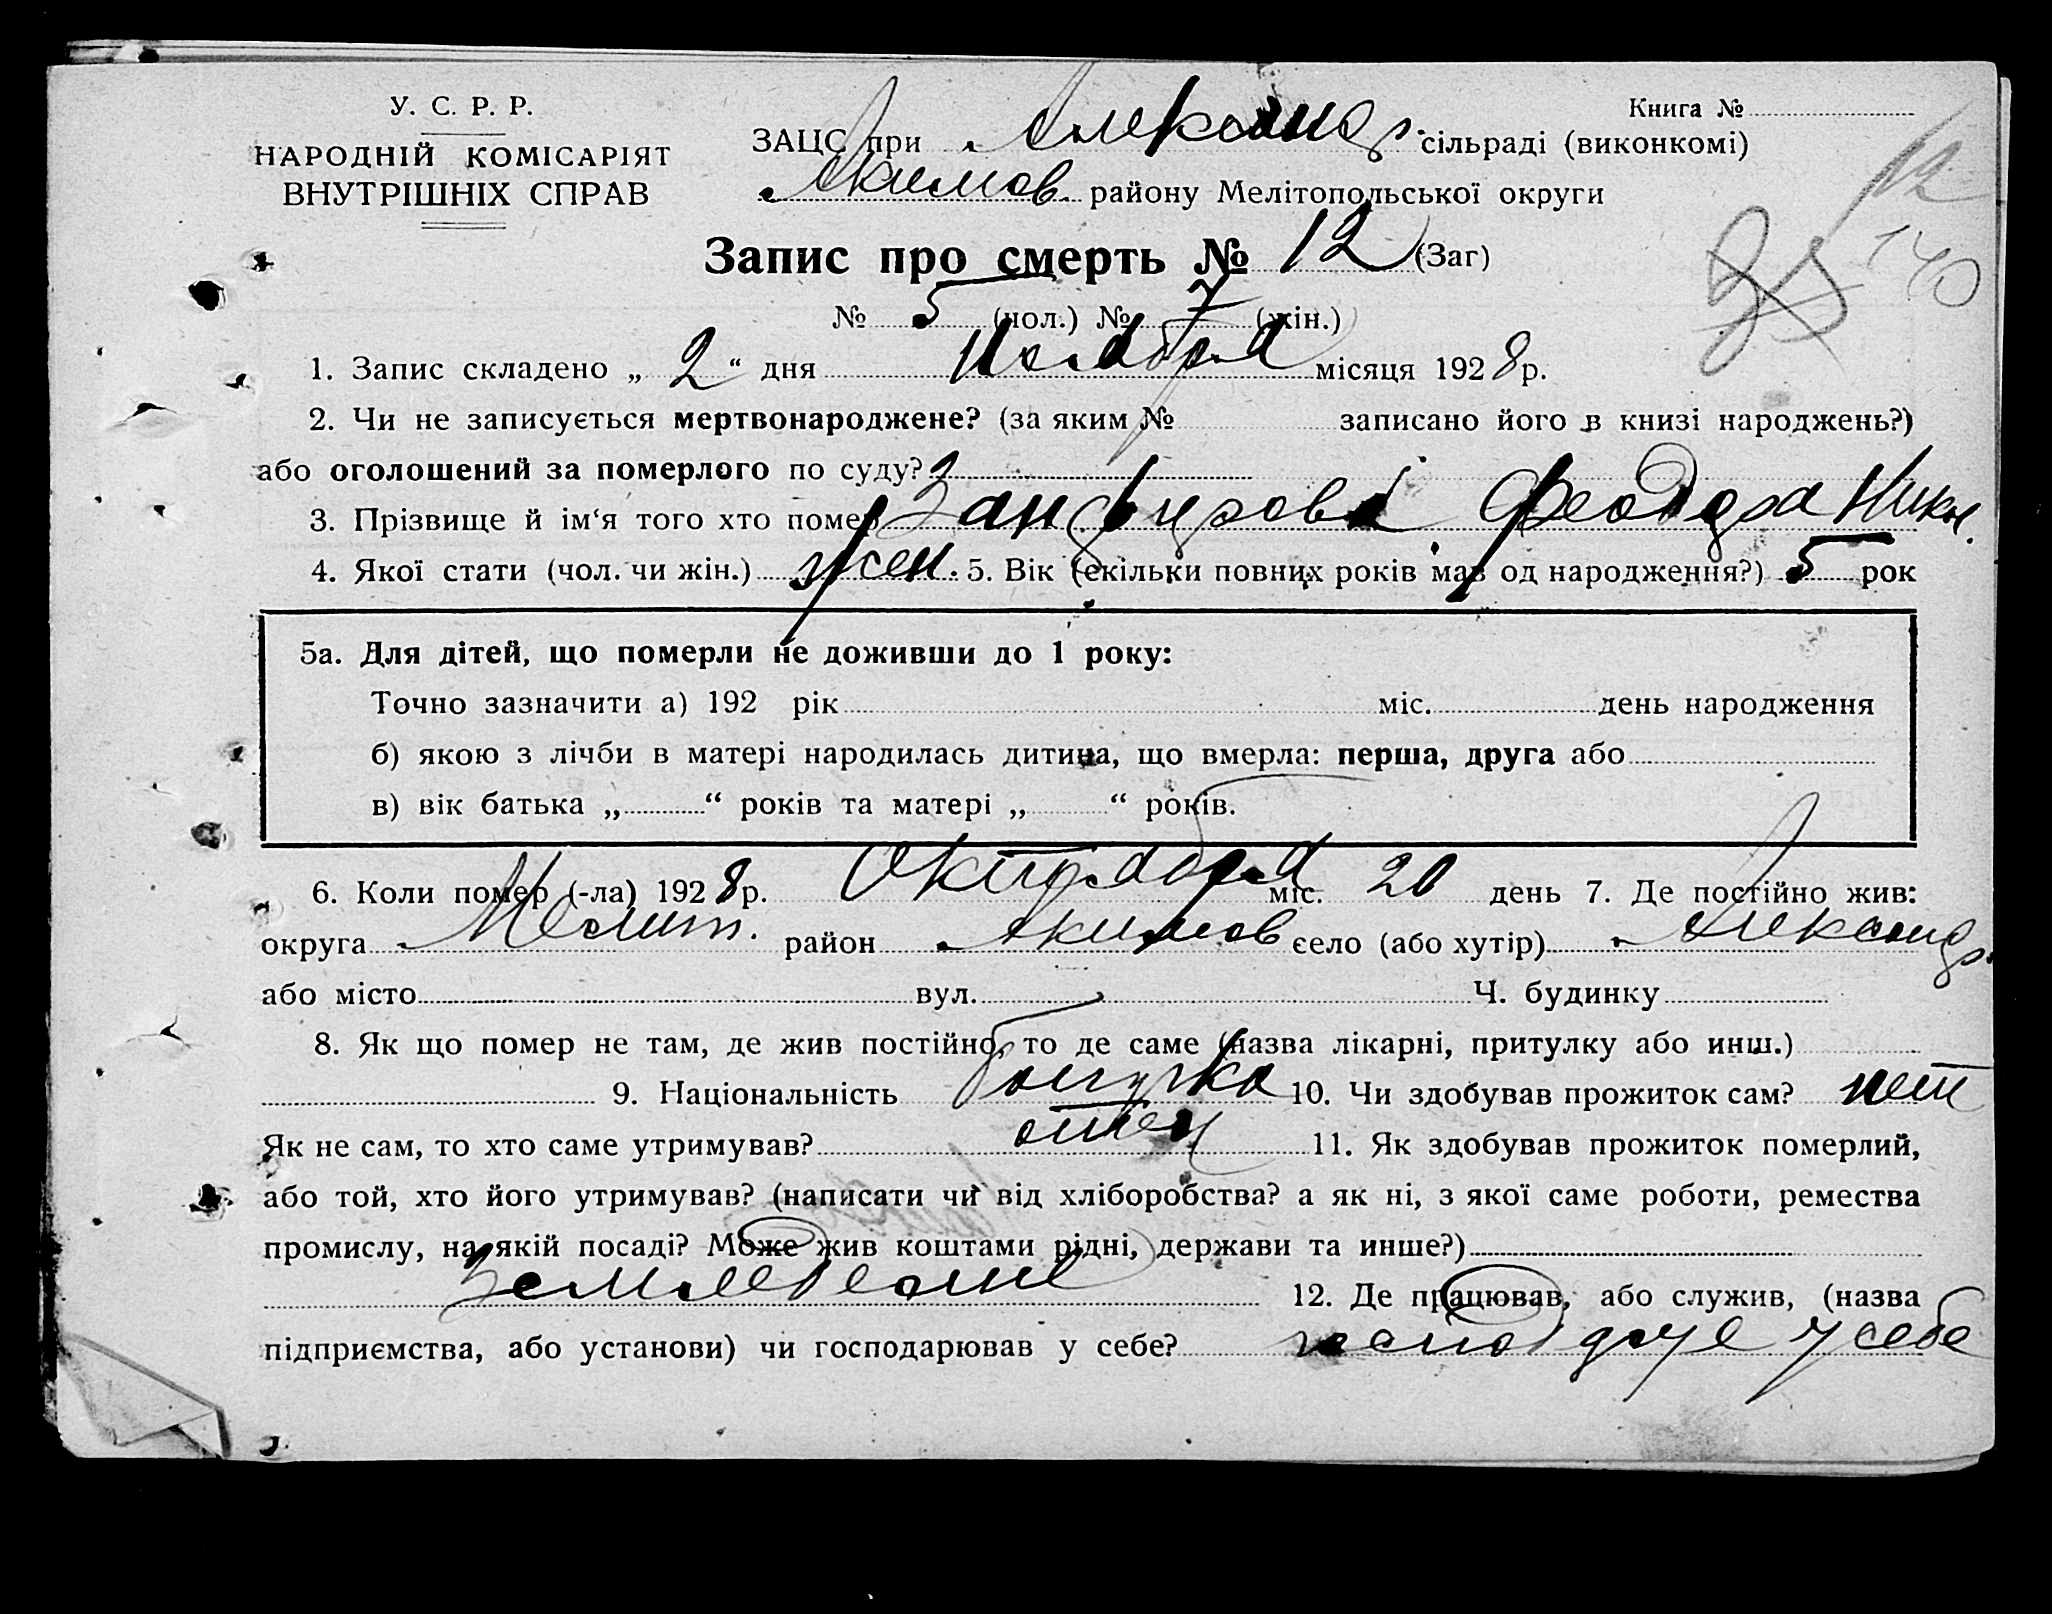 У. С. Р. Р.
НАРОДНІЙ КОМІСАРІЯТ
ВНУТРІШНІХ СПРАВ
Книга №
ЗАЦС при Александр. сільраді (виконкомі)
Акимов. району Мелітопольської округи
12
35
140
Запис про смерть № 12 (Заг)
№ 5 (чол.) № 7 (жін.)
1. Запис складено „ 2 “ дня Ноября місяця 1928 р.
2. Чи не записується мертвонароджене? (за яким № записано його в книзі народжень?)
або оголошений за померлого по суду?
3. Прізвище й ім‘я того хто помер Занфирова Феодора Никол.
4. Якої стати (чол. чи жін.) жен. 5. Вік (скільки повних років мав од народження?) 5 рок
5а. Для дітей, що померли не доживши до 1 року:
Точно зазначити а) 192 рік міс. день народження
б) якою з лічби в матері народилась дитина, що вмерла: перша, друга або
в) вік батька „ “ років та матері „ “ років.
6. Коли помер (-ла) 1928 р. Октября міс. 20 день 7. Де постійно жив:
округа Мелит. район Акимов село (або хутір) Александр.
або місто вул. Ч. будинку
8. Як що помер не там, де жив постійно, то де саме (назва лікарні, притулку або инш.)
9. Національність болгарка 10. Чи здобував прожиток сам? нет
Як не сам, то хто саме утримував? отец 11. Як здобував прожиток померлий,
або той, хто його утримував? (написати чи від хліборобства? а як ні, з якої саме роботи, ремества
промислу, на якій посаді? Може жив коштами рідні, держави та инше?)
Земледелие 12. Де працював, або служив, (назва
підприємства, або установи) чи господарював у себе? у себе